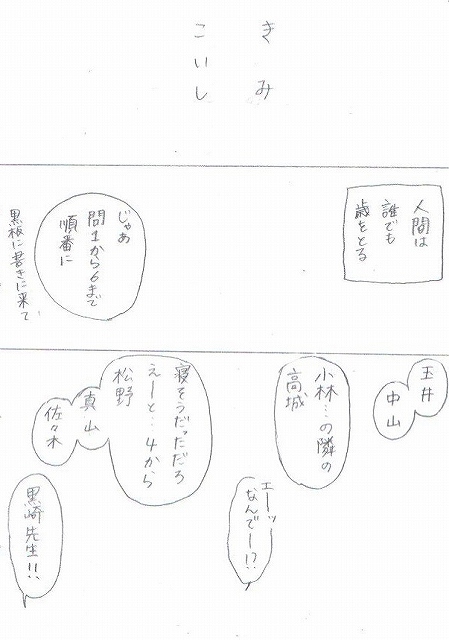 きみ
こいし
人間は
誰でも
歳をとる
じゃあ
問1から6まで
順番に
黒板に書きに来て
玉井
中山
小林…の隣の
高城
エーッ
なんでー!?
寝そうだっただろ
えーと…4から
松野
真山
佐々木
黒崎先生!!